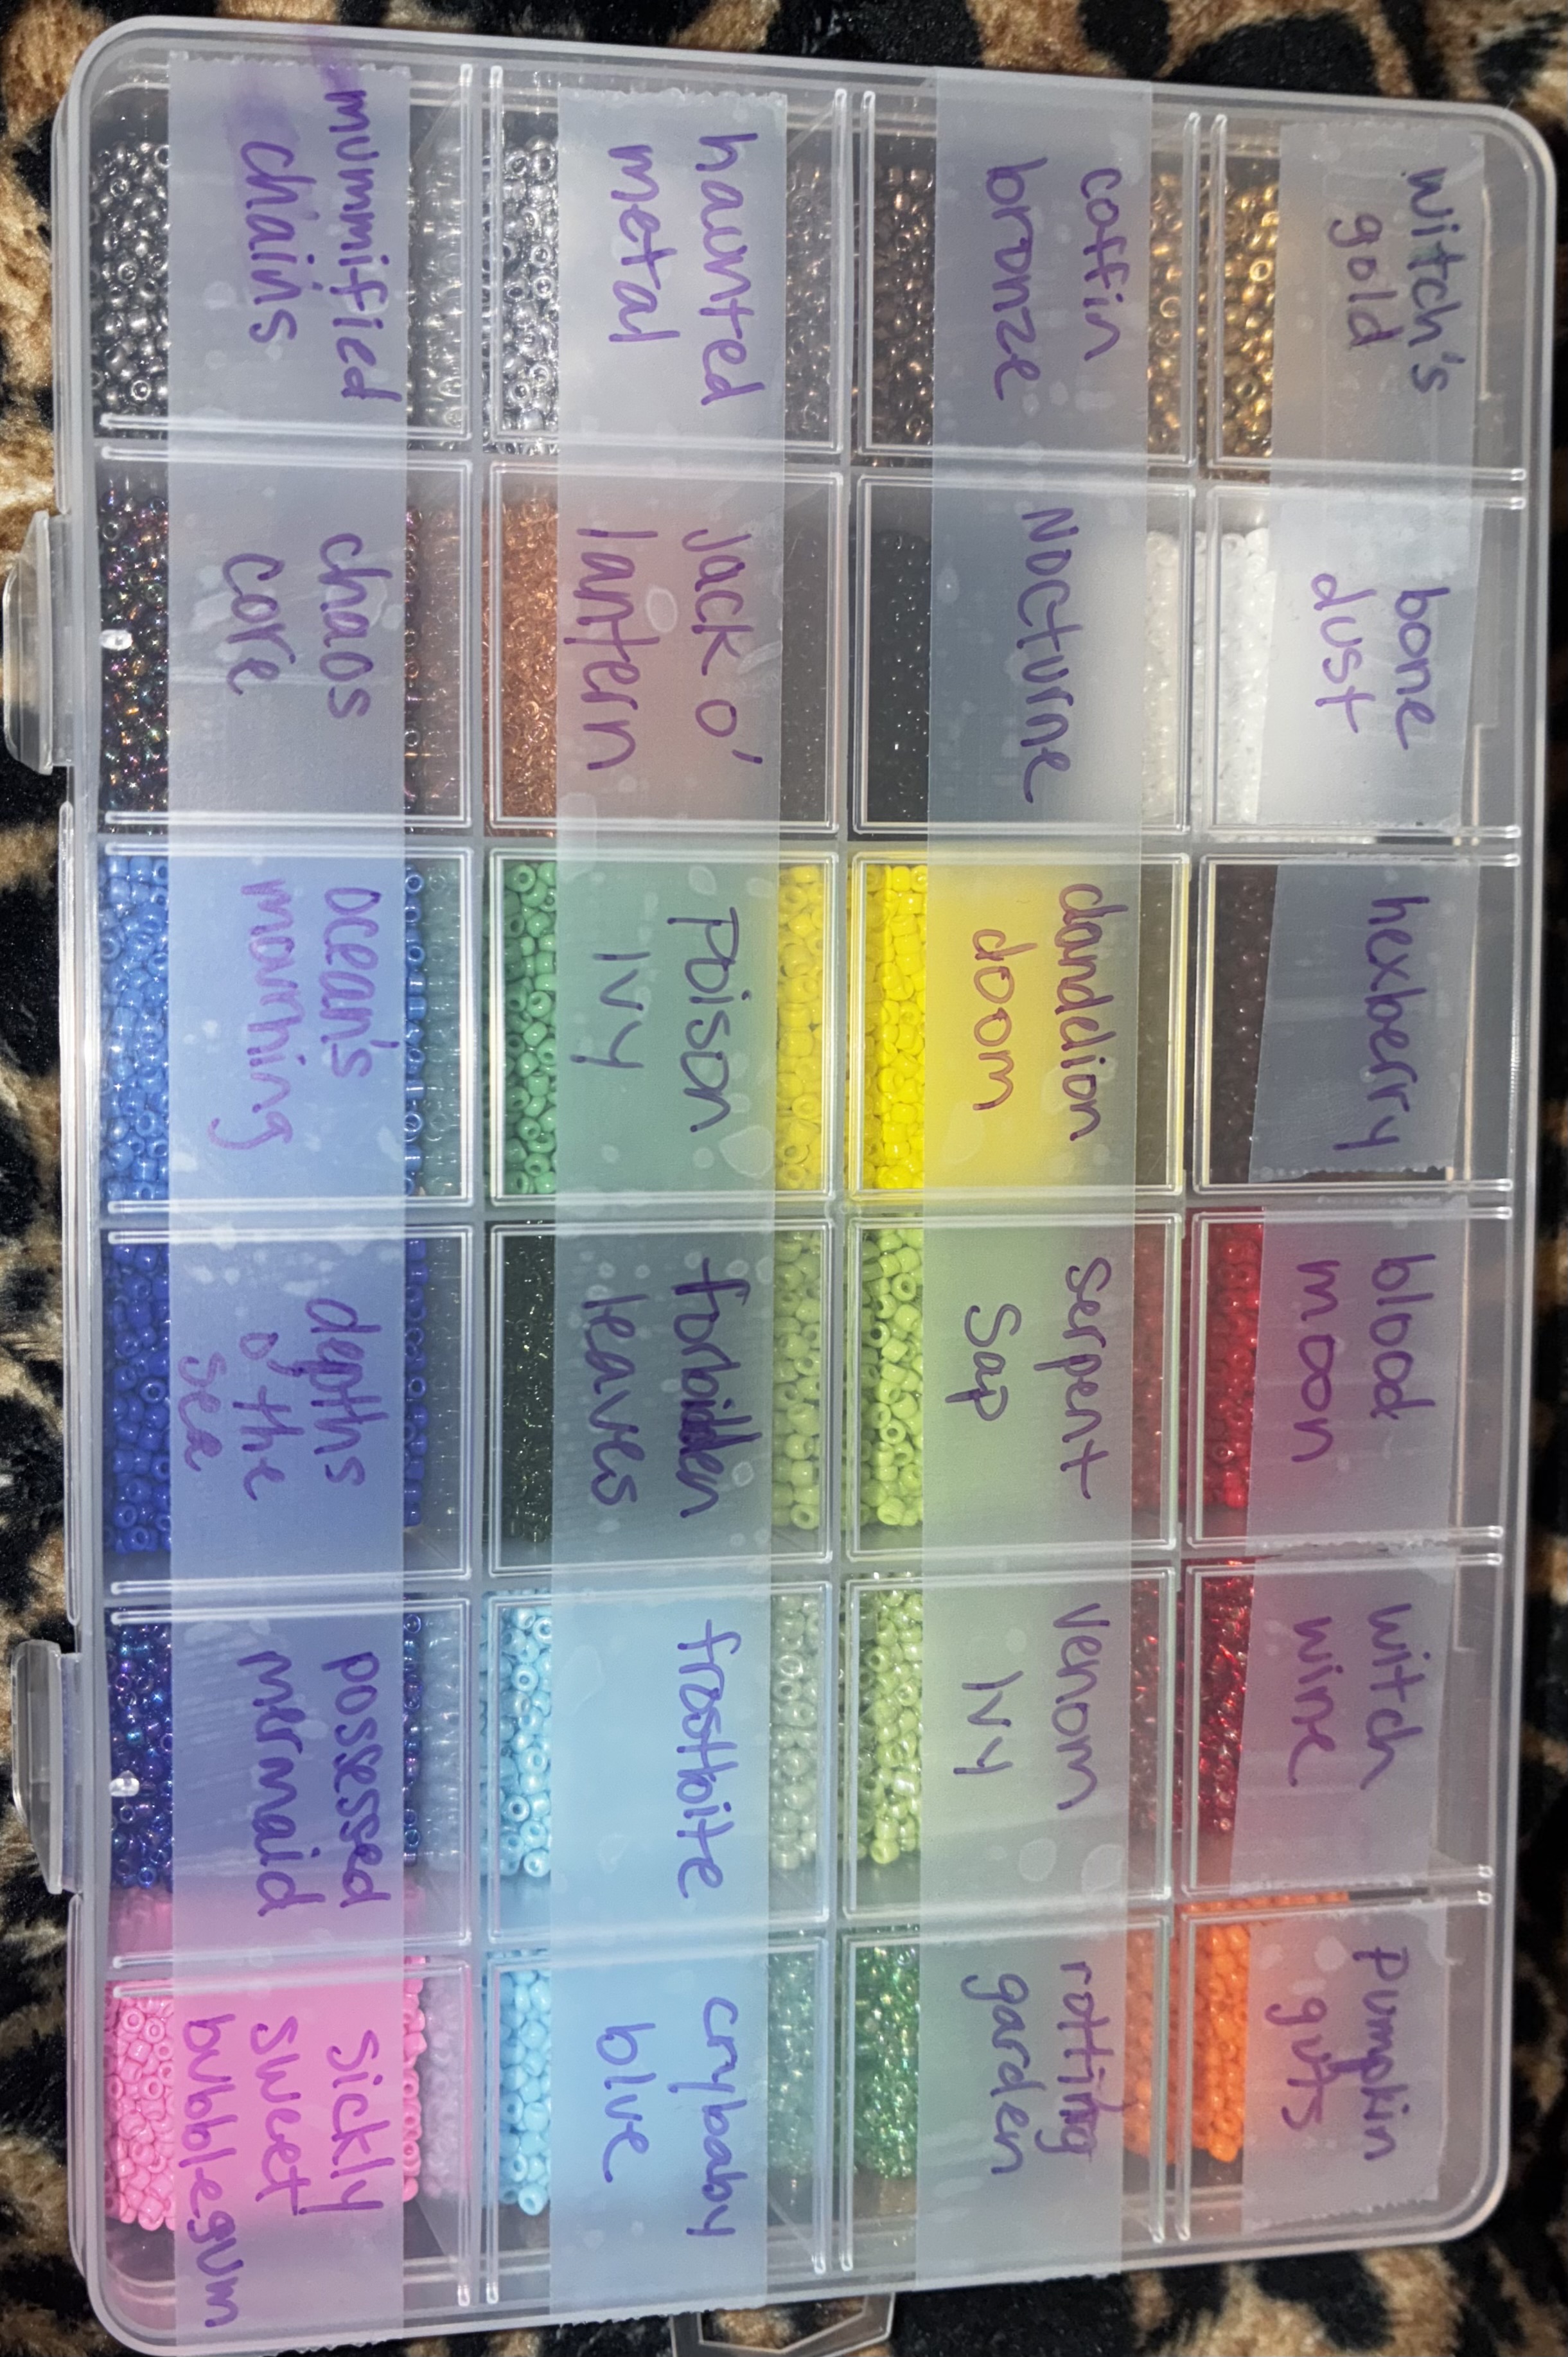 witch's
gold
bone
dust
hexberry
blood
moon
witch
wine
pumpkin
guts
coffin
bronze
Nocturne
dandelion
doom
serpent
Sap
Venom
IVY
rotting
garden
haunted
metal
Jack o'
lantern
Poison
IVY
forbidden
leaves
frostbite
crybaby
blue
mummified
chains
chaos
core
ocean's
mourning
depths
of the
sea
possessed
mermaid
Sickly
Sweet
bubblegum